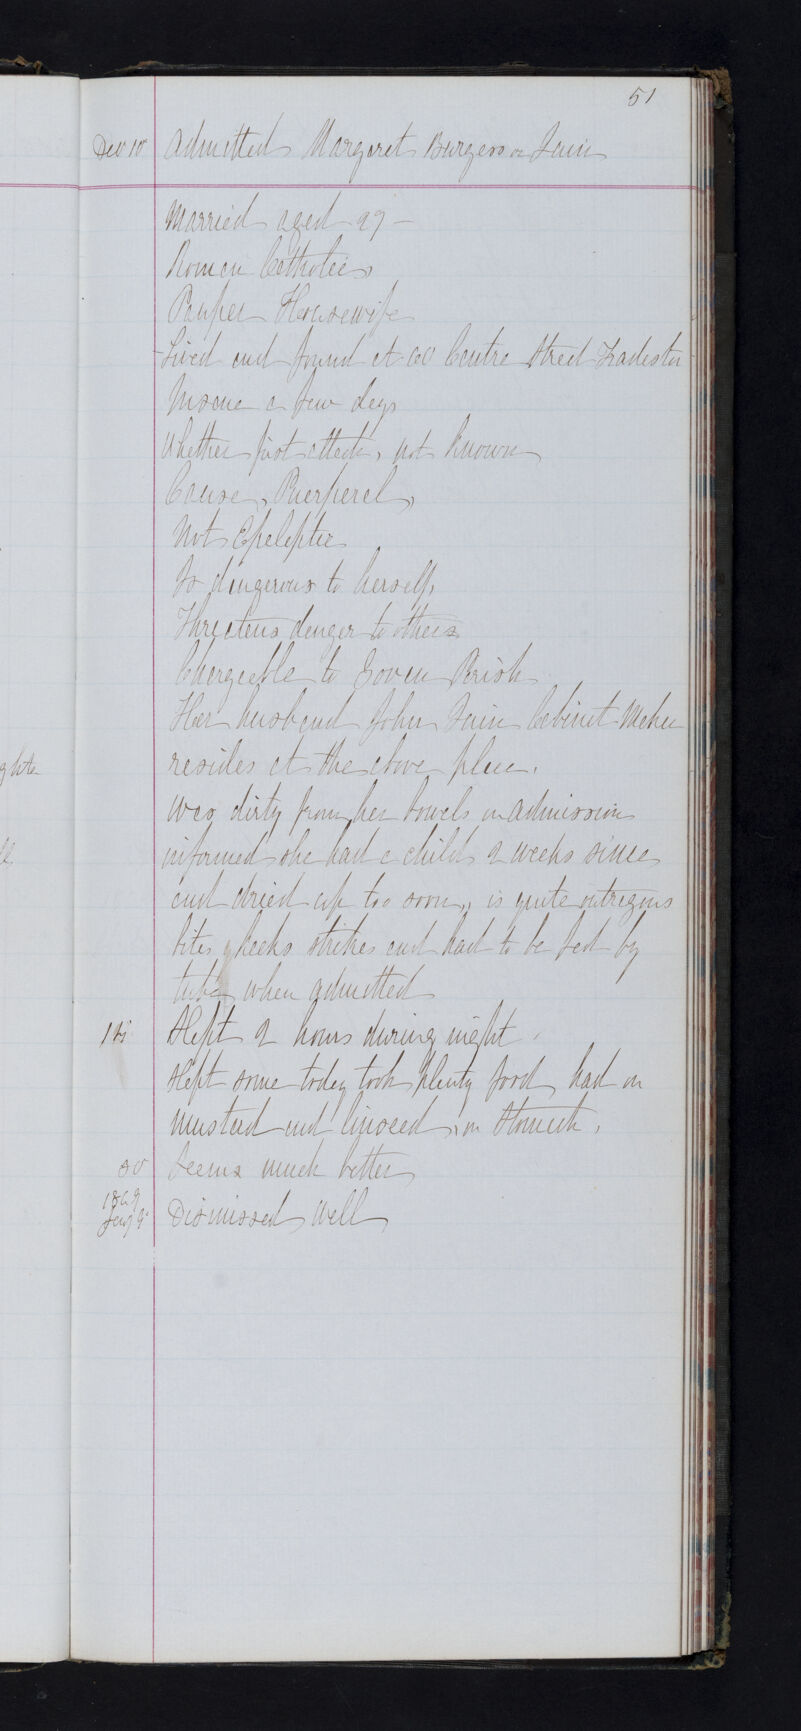 51
Dec 10 Admitted Margaret Burgess or Fair
Married aged 29 —
Roman Catholic
Pauper Housewife
Lived and found at 60 Centre Street Tradeston
Insane a few days
Whether first attack, not known
Cause, Puerperal,
Not Epeleptic
Is dangerous to herself,
Threatens danger to others
Chargeable to Govan Parish
Her husband John Fair Cabinet Maker
resides at the above place.
Was dirty from her bowels on admission
informed she had a child 2 weeks since
and dried up too soon, is quite
bites strikes and had to be fed by
tube when admitted
11 Slept 2 hours during night.
Slept some today took plenty food, had on
mustard and linseed, on stomach.
30 Seems much better
1869
Jany 9 Dismissed Well